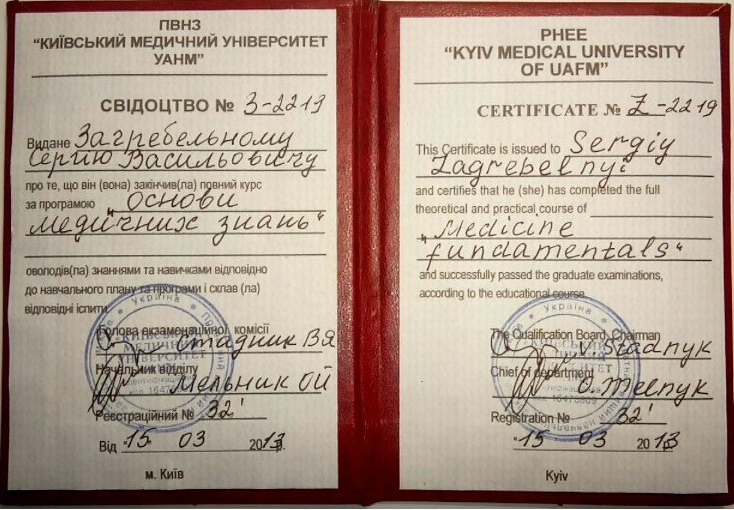 ПВНЗ
“КИЇВСЬКИЙ МЕДИЧНИЙ УНІВЕРСИТЕТ
УАНМ”
СВІДОЦТВО № З-2219
Видане Загребельному
Сергію Васильовичу
про те, що він (вона) закінчив(ла) повний курс
за програмою „Основи
медичних знань“
оволодів(ла) знаннями та навичками відповідно
до навчального плану та програми і склав (ла)
відповідні іспити
Голова екзаменаційної комісії
Стадник В Я
Начальник відділу
Мельник ОЙ
Реєстраційний № 32'
Від "15" 03 2013р.
м. Київ
PHEE
“KYIV MEDICAL UNIVERSITY
OF UAFM”
CERTIFICATE № Z-2219
This Certificate is issued to Sergiy
Zagrebelnyi
and certifies that he (she) has completed the full
theoretical and practical course of
„Medicine
fundamentals“
and successfully passed the graduate examinations,
according to the educational course
The Qualification Board Chairman
V. Stadnyk
Chief of department
O. Melnyk
Registration № 32'
"15" 03 2013
Kyiv